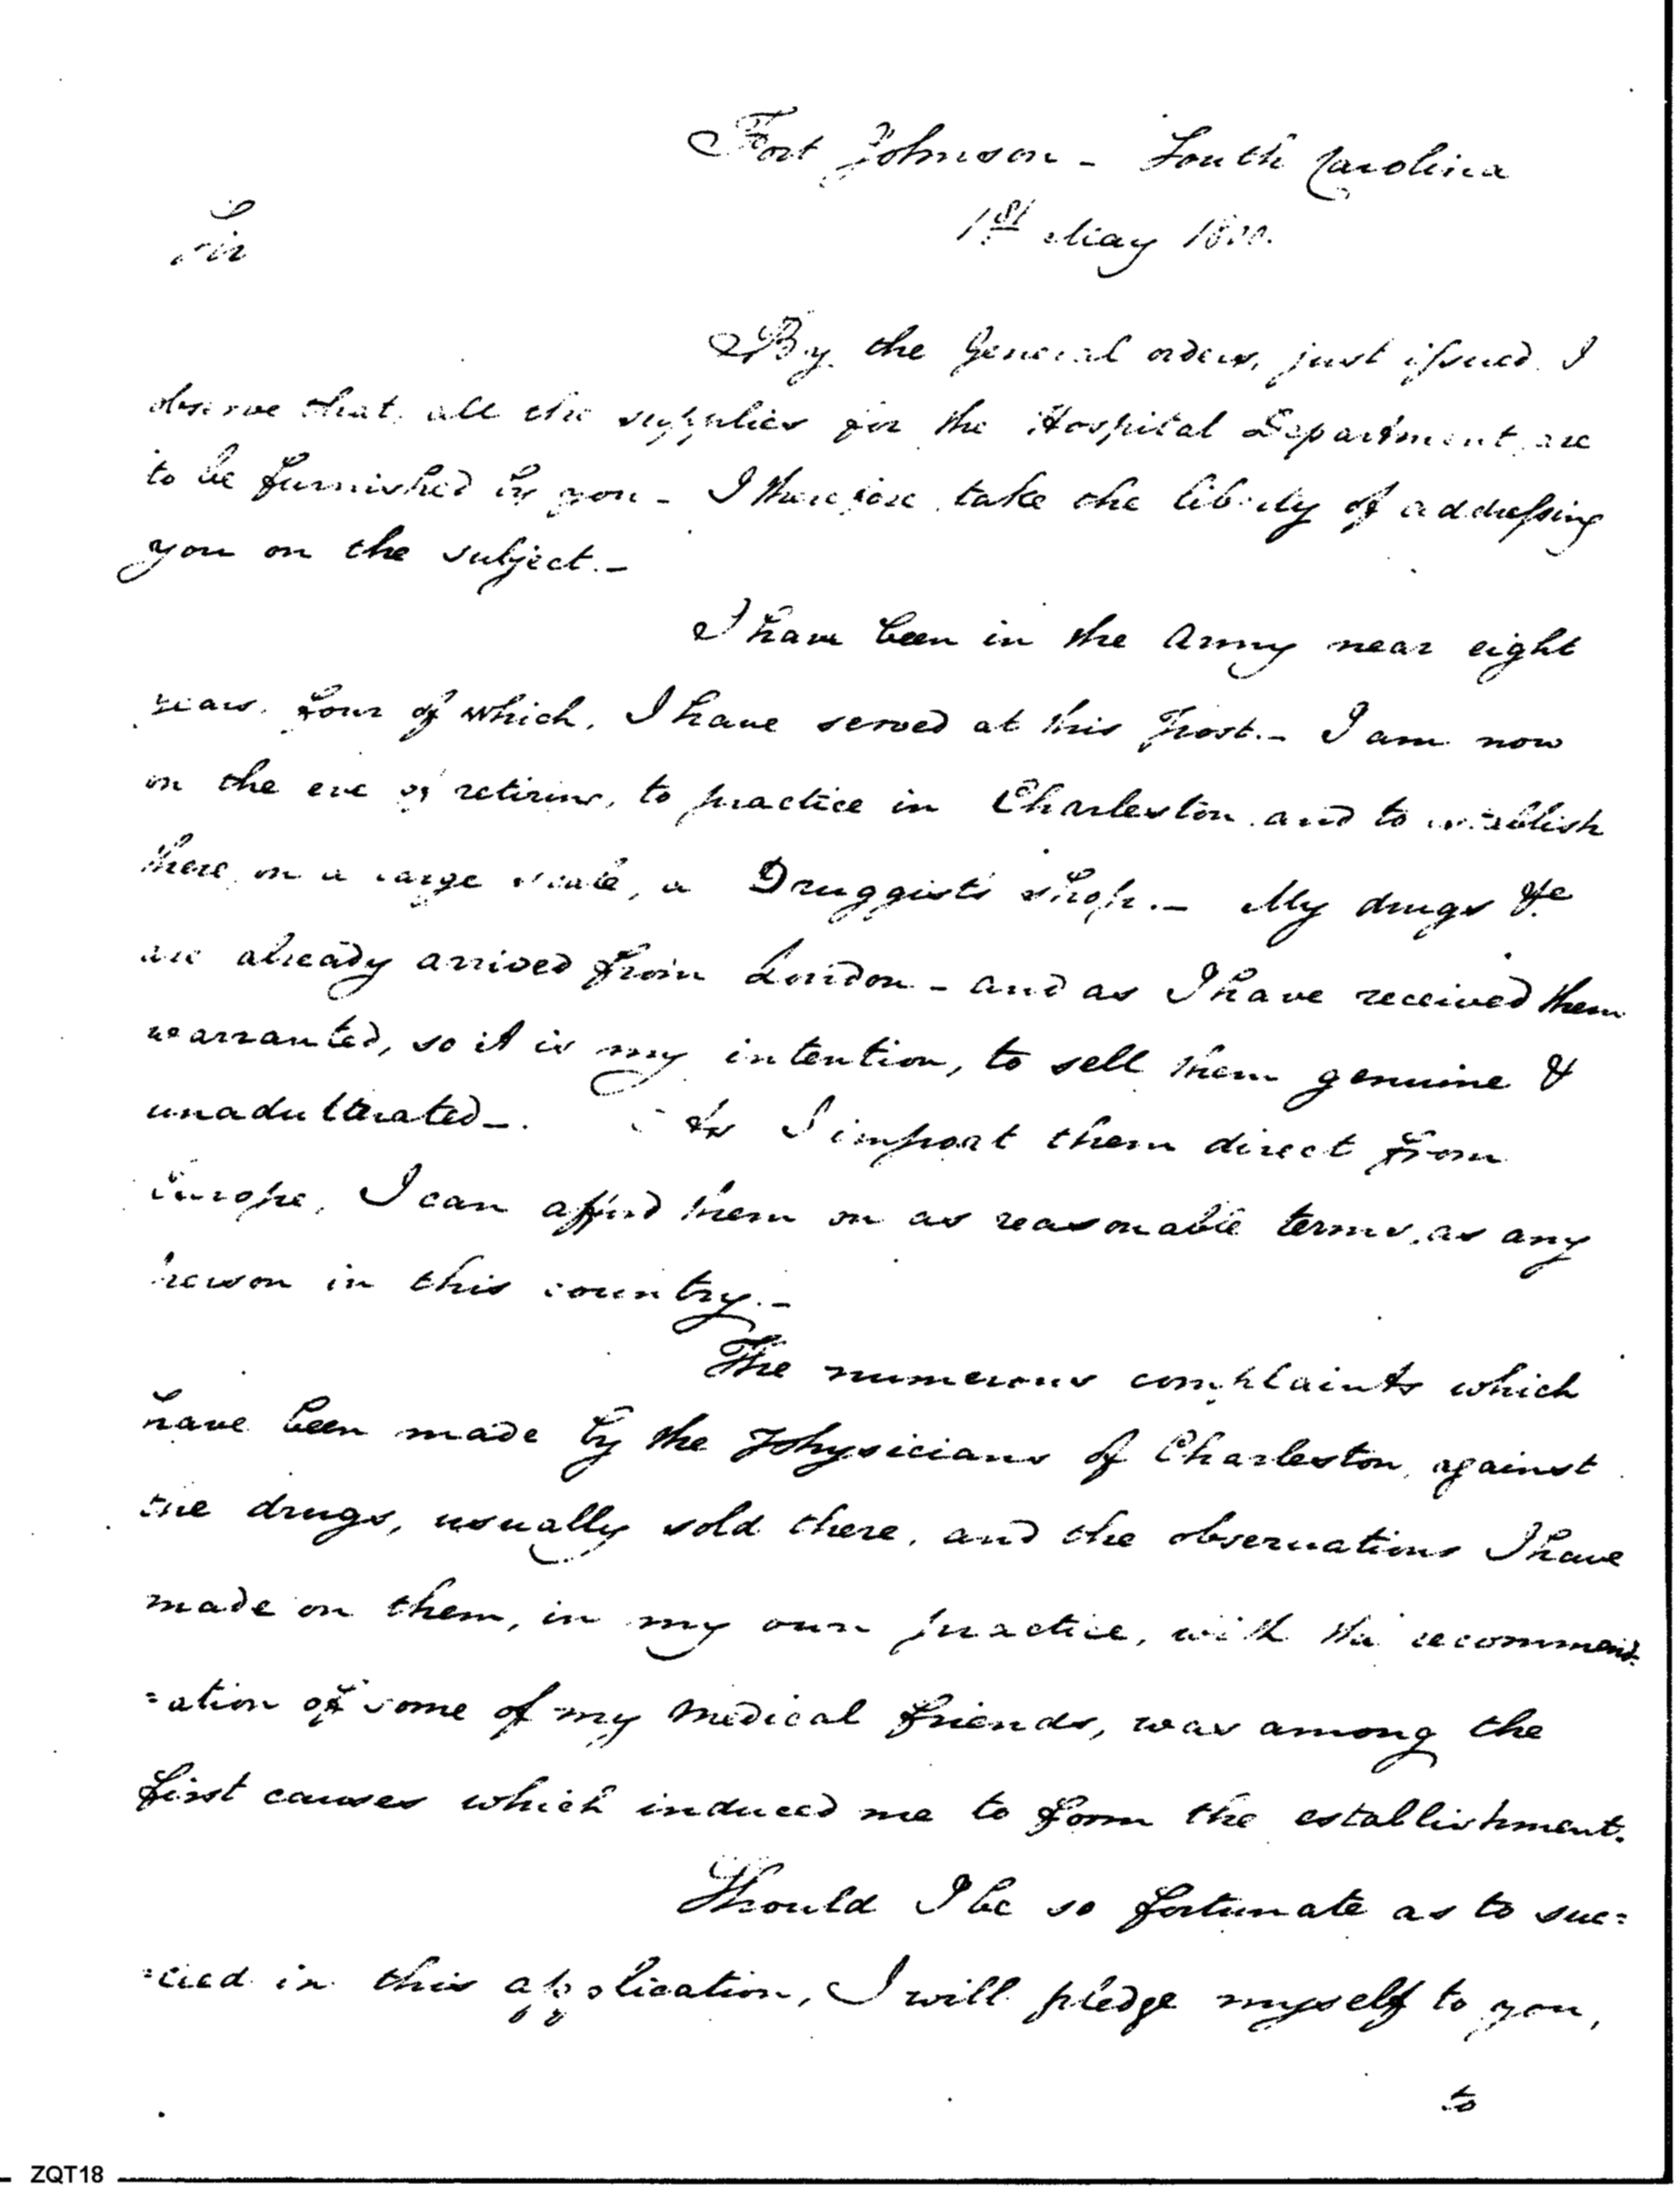 Fort Johnson - South Carolina
1st May 1800.
Sir
By the General orders, just issued I
observe that, all the supplies for the Hospital Department, are
to be furnished by you - I therefore, take the liberty of addressing
you on the subject. -
I have been in the Army near eight
years, four of which, I have served at this Post. - I am now
on the eve of retiring, to practice in Charleston and to establish
there, on a large scale, a Druggist's Shop. - My drugs &c
are already arrived from London - and as I have received them
warranted, so it is my intention, to sell them genuine &
unadulterated -. As I import them direct from
Europe, I can afford them on as reasonable terms, as any
person in this country. -
The numerous complaints which
have been made by the Physicians of Charleston, against
the drugs, usually sold there, and the observations I have
made on them, in my own practice, with the recommend-
=ation of some of my medical friends, was among the
first causes which induced me to form the establishment.
Should I be so fortunate as to suc=
=ceed in this application, I will pledge myself to you,
to
ZQT18